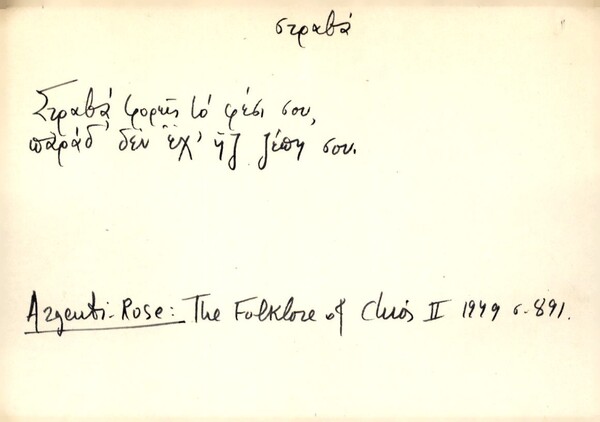 στραβά
Στραβά φορεῖς τό φέσι σου,
παράδ' δέν ἔχ' ἡ τζέπη σου.
Argenti-Rose: The Folklore of Chios II 1949 σ. 891.